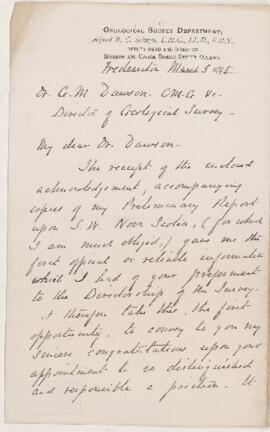 GEOLOGICAL SURVEY DEPARTMENT,
Alfred R. C. Selwyn, C.M.G., LL.D., F.R.S.,
DEPUTY HEAD AND DIRECTOR
MUSEUM AND OFFICE, SUSSEX STREET, OTTAWA.
Fredericton March 5 1895
Dr. G. M. Dawson. C.M.G &c-
Director of Geological Survey-
My dear Dr. Dawson-
The receipt of the enclosed
acknowledgement, accompanying
copies of my Preliminary Report
upon S.W. Nova Scotia, (for which
I am much obliged,) gave me the
first official or reliable information
which I had of your preferment
to the Directorship of the Survey.
I therefore take this, the first
opportunity, to convey to you my
sincere congratulations upon your
appointment to so distinguished
and responsible a position. It